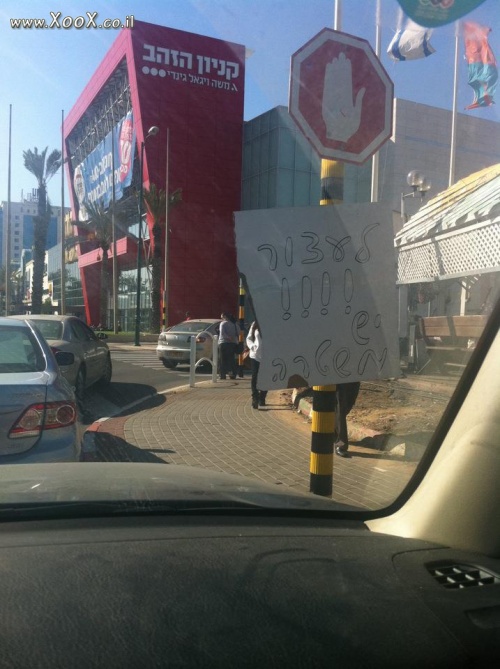 www.XooX.co.il
קניון הזהב
משה ויגאל גינדי
לעצור
!!!!
יש
משטרה